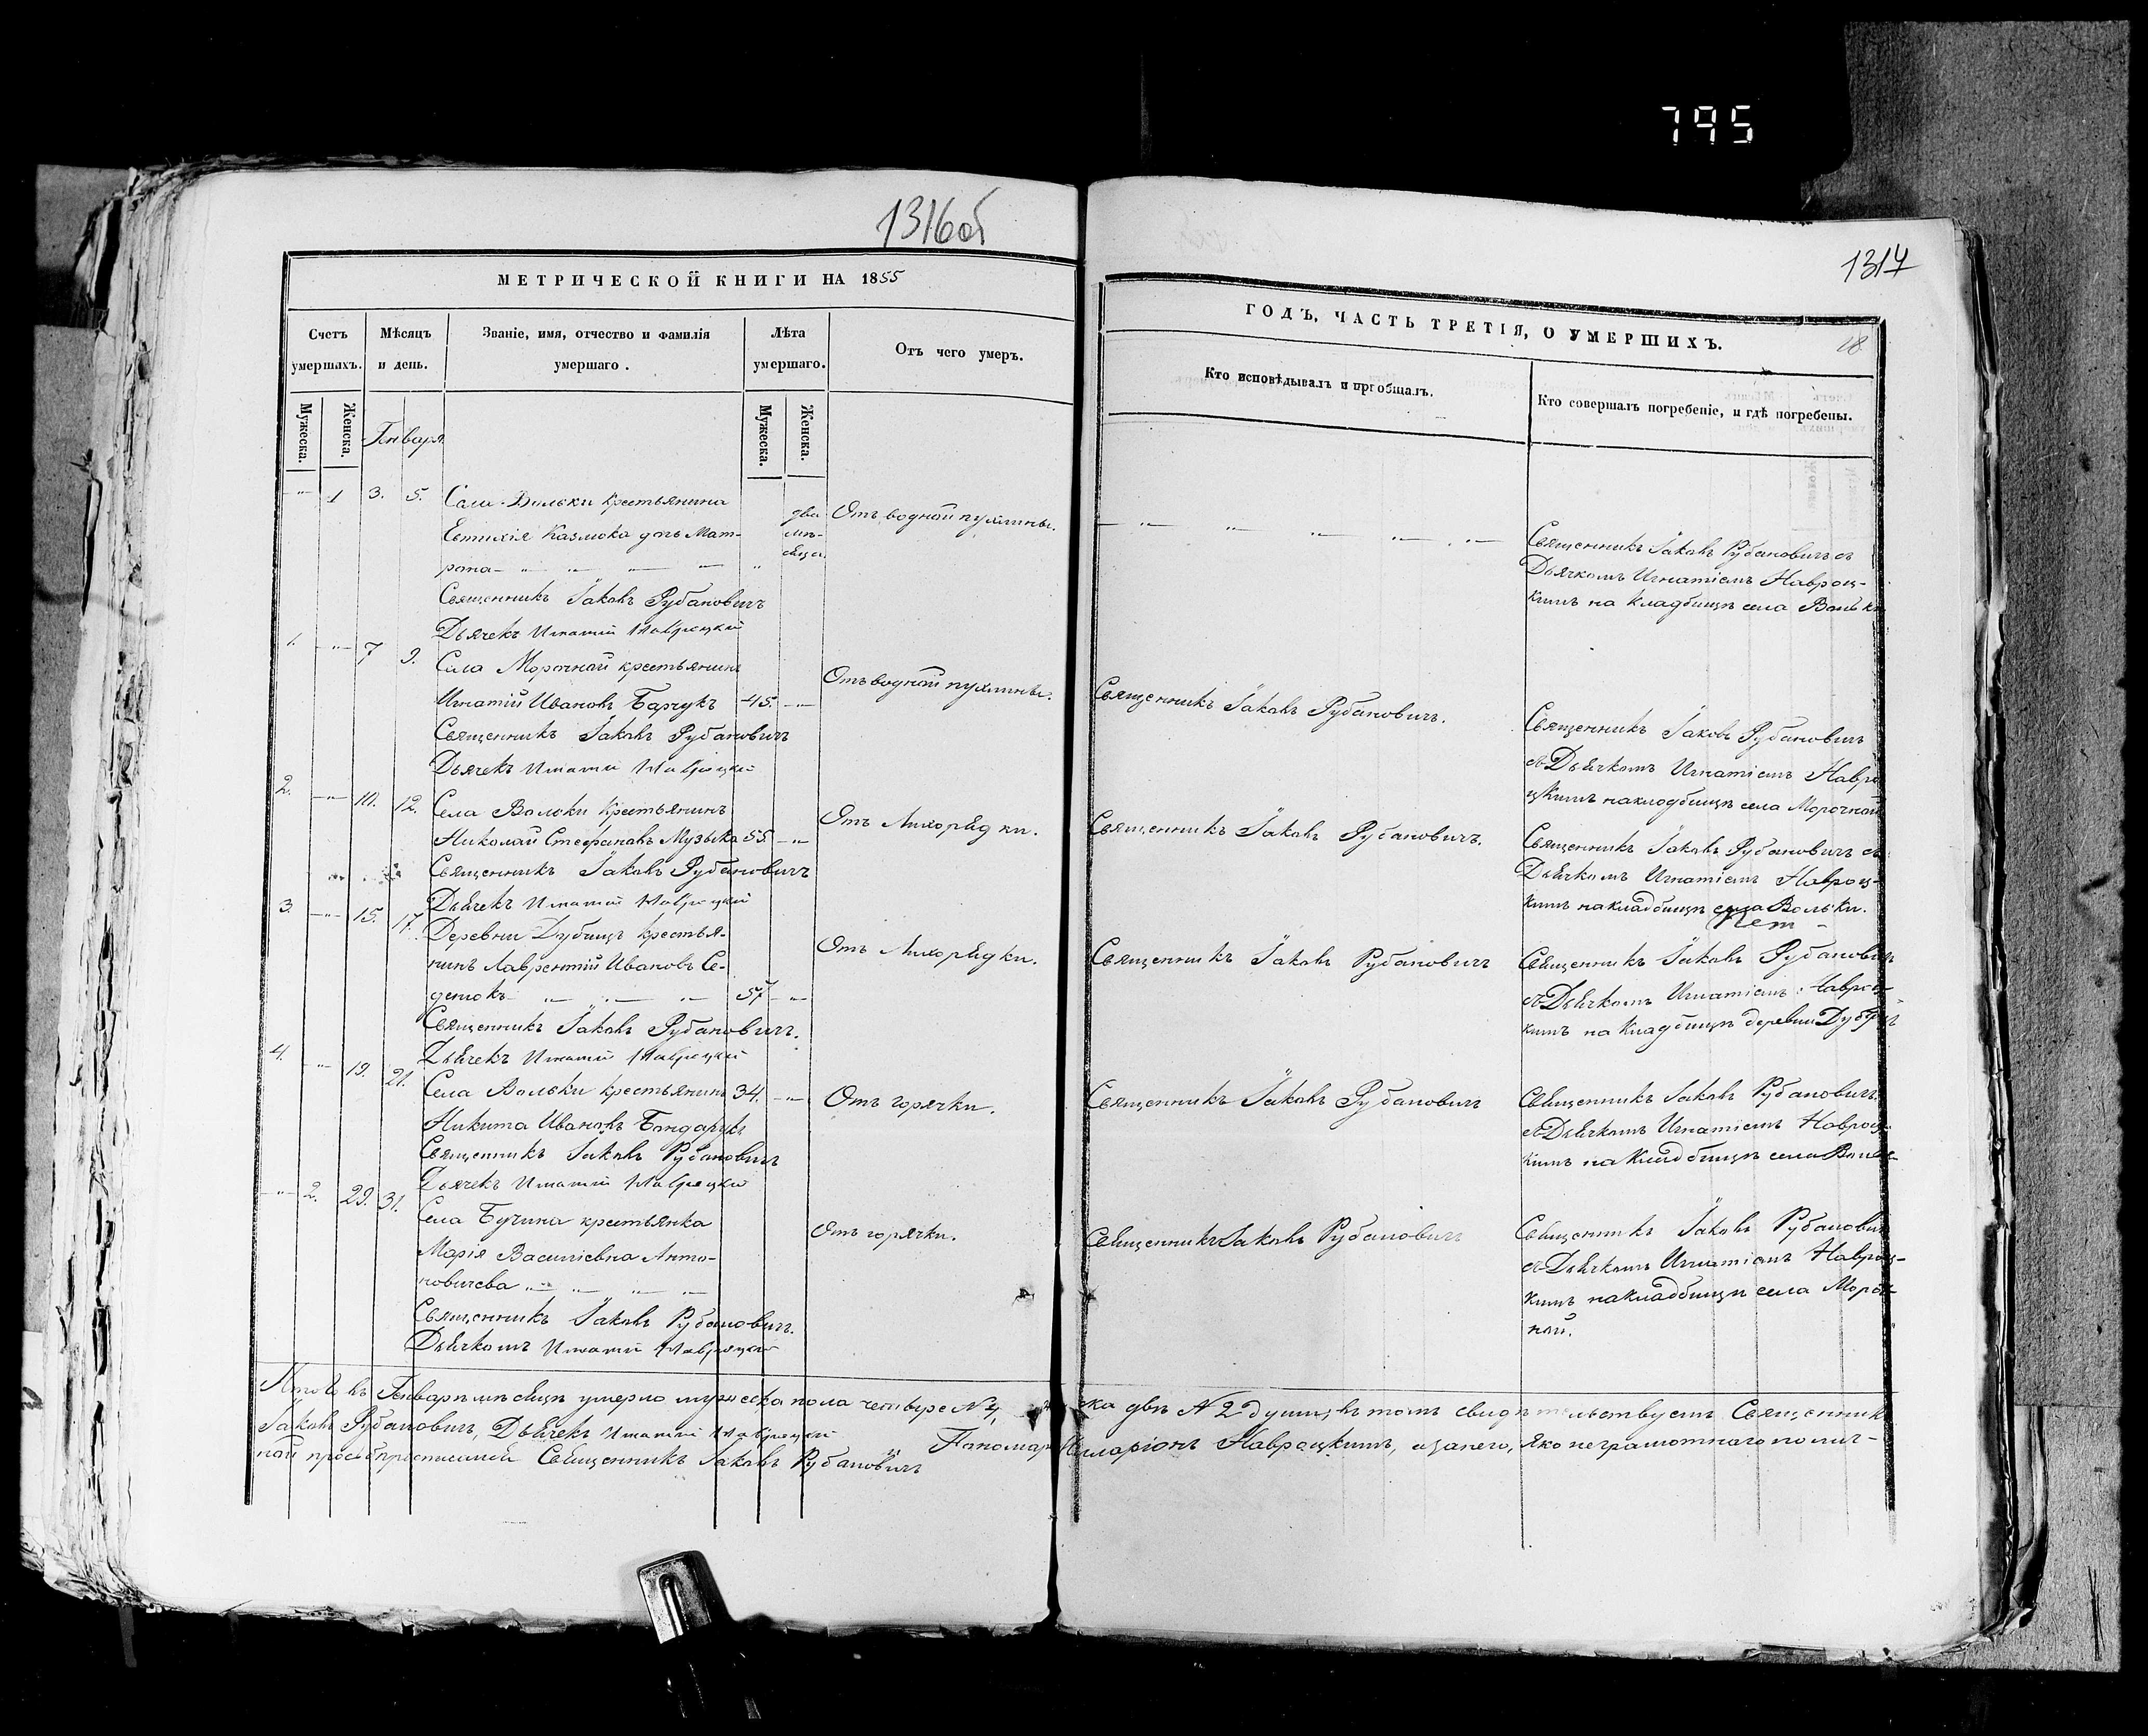 795
1316об
1317
МЕТРИЧЕСКОЙ КНИГИ НА 1855
ГОДЪ, ЧАСТЬ ТРЕТІЯ, О УМЕРШИХЪ.
18
Счетъ умершихъ.
Мѣсяцъ и день.
Званіе, имя, отчество и фамилія умершаго.
Лѣта умершаго.
Отъ чего умеръ.
Кто исповѣдывалъ и пріобщалъ.
Кто совершалъ погребеніе, и гдѣ погребены.
Мужеска.
Женска.
Генваря
Мужеска.
Женска.
1 3. 5. Села Вольки крестьянина
Евтихія Казмюка дчь Мат-
рона
два
мѣ-
сяца
Отъ водной пухлины.
Священникъ Іаковъ Рубановичъ съ
Дьячкомъ Игнатіемъ Навроц-
кимъ на кладбищѣ села Вольки
Священникъ Іаковъ Рубановичъ
Дьячекъ Игнатій Навроцкій
1. 7 9. Села Морочной крестьянинъ
Игнатій Ивановъ Барчукъ 45.
Отъ водной пухлины.
Священникъ Іаковъ Рубановичъ.
Священникъ Іаковъ Рубановичъ
съ Дьячкомъ Игнатіемъ Навро
цкимъ на кладбищѣ села Морочной
Священникъ Іаковъ Рубановичъ
Дьячекъ Игнатій Навроцкій
2. 10. 12. Села Вольки Крестьянинъ
Николай Стефановъ Музыка 55.
Отъ Лихорадки.
Священникъ Іаковъ Рубановичъ.
Священникъ Іаковъ Рубановичъ съ
Дьячкомъ Игнатіемъ Навроц-
кимъ на кладбищѣ села Вольки.
Священникъ Іаковъ Рубановичъ
Дьячекъ Игнатій Навроцкій
3. 15. 17. Деревни Дубищъ крестья-
нинъ Лаврентій Ивановъ Се-
денюкъ 57
Отъ Лихорадки.
Священникъ Іаковъ Рубановичъ
Священникъ Іаковъ Рубанович
съ Дьячкомъ Игнатіемъ Навроц-
кимъ на Кладбищѣ деревни
Священникъ Іаковъ Рубановичъ.
Дьячекъ Игнатій Навроцкій
4. 19. 21. Села Вольки крестьянинъ 34.
Никита Ивановъ Бондарукъ
Отъ горячки.
Священникъ Іаковъ Рубановичъ
Священникъ Іаковъ Рубановичъ
съ Дьячкомъ Игнатіемъ Навроц-
кимъ на Кладбищѣ села
Священникъ Іаковъ Рубановичъ
Дьячекъ Игнатій Навроцкій
2. 29. 31. Села Бучина крестьянка
Марія Василіевна Анто-
новичева
Отъ горячки.
Священникъ Іаковъ Рубановичъ
Священникъ Іаковъ Рубанович
съ Дьячкомъ Игнатіемъ Навроц-
кимъ на кладбищѣ села Мороч-
ной.
Священникъ Іаковъ Рубановичъ.
Дьячкомъ Игнатій Навроцкій
Итого въ Генварѣ мѣсяцѣ умерло мужеска пола четыре N 4, ска двѣ N 2 души, въ томъ свидѣтельствуемъ Священник
Іаковъ Рубановичъ, Дьячекъ Игнатій Навроцкій Пономарь Иларіонъ Навроцкимъ, а за него, яко неграмотнаго по лич-
ной просьбѣ Священникъ Іаковъ Рубановичъ